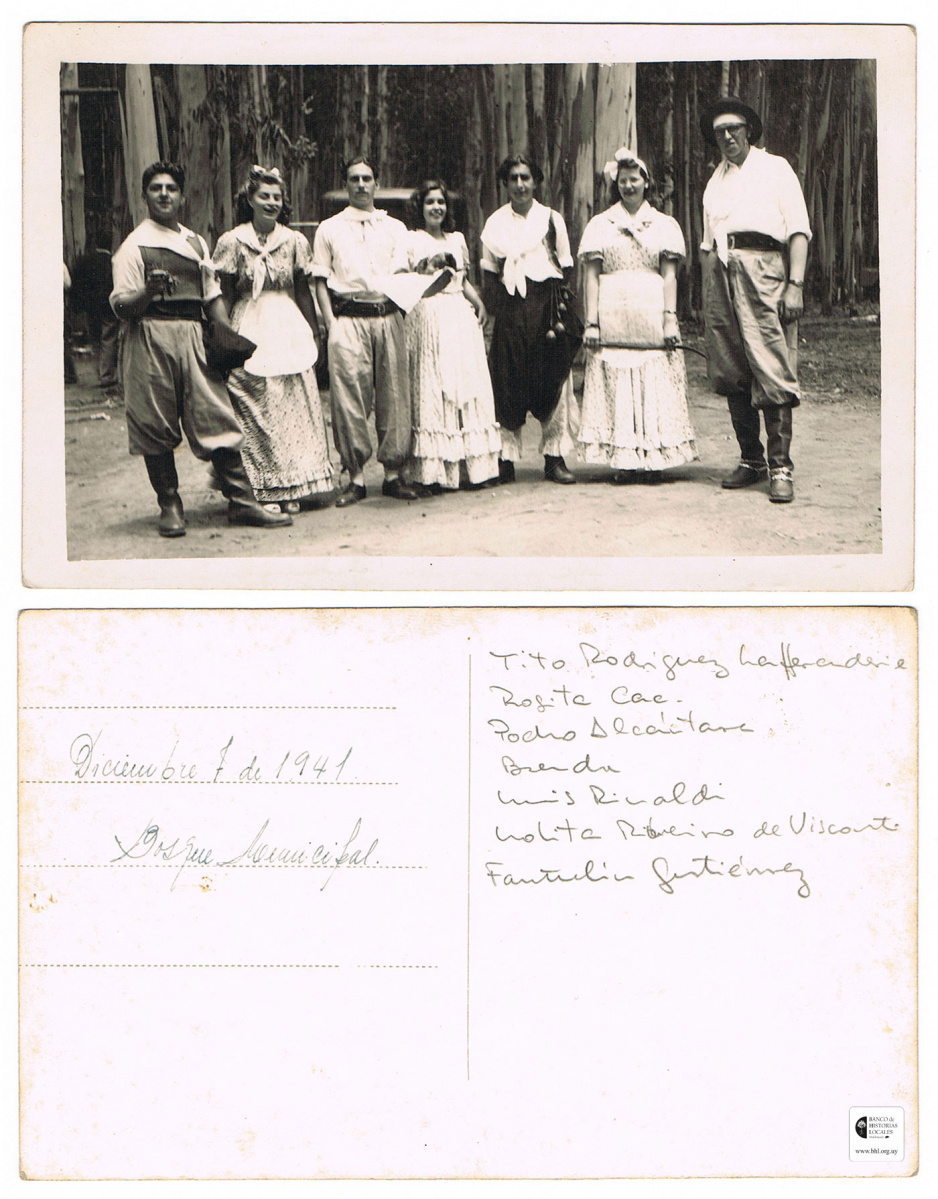 Diciembre 7 de 1941.
Bosque Municipal.
Tito Rodriguez Lafferanderie
Rosita Cac.
Pedro Alcántara
Brenda
Luis Rinaldi
Lolita Ribeiro de Visconti
Fantulin Gutiérrez
BANCO de
HISTORIAS
LOCALES
www.bhl.org.uy